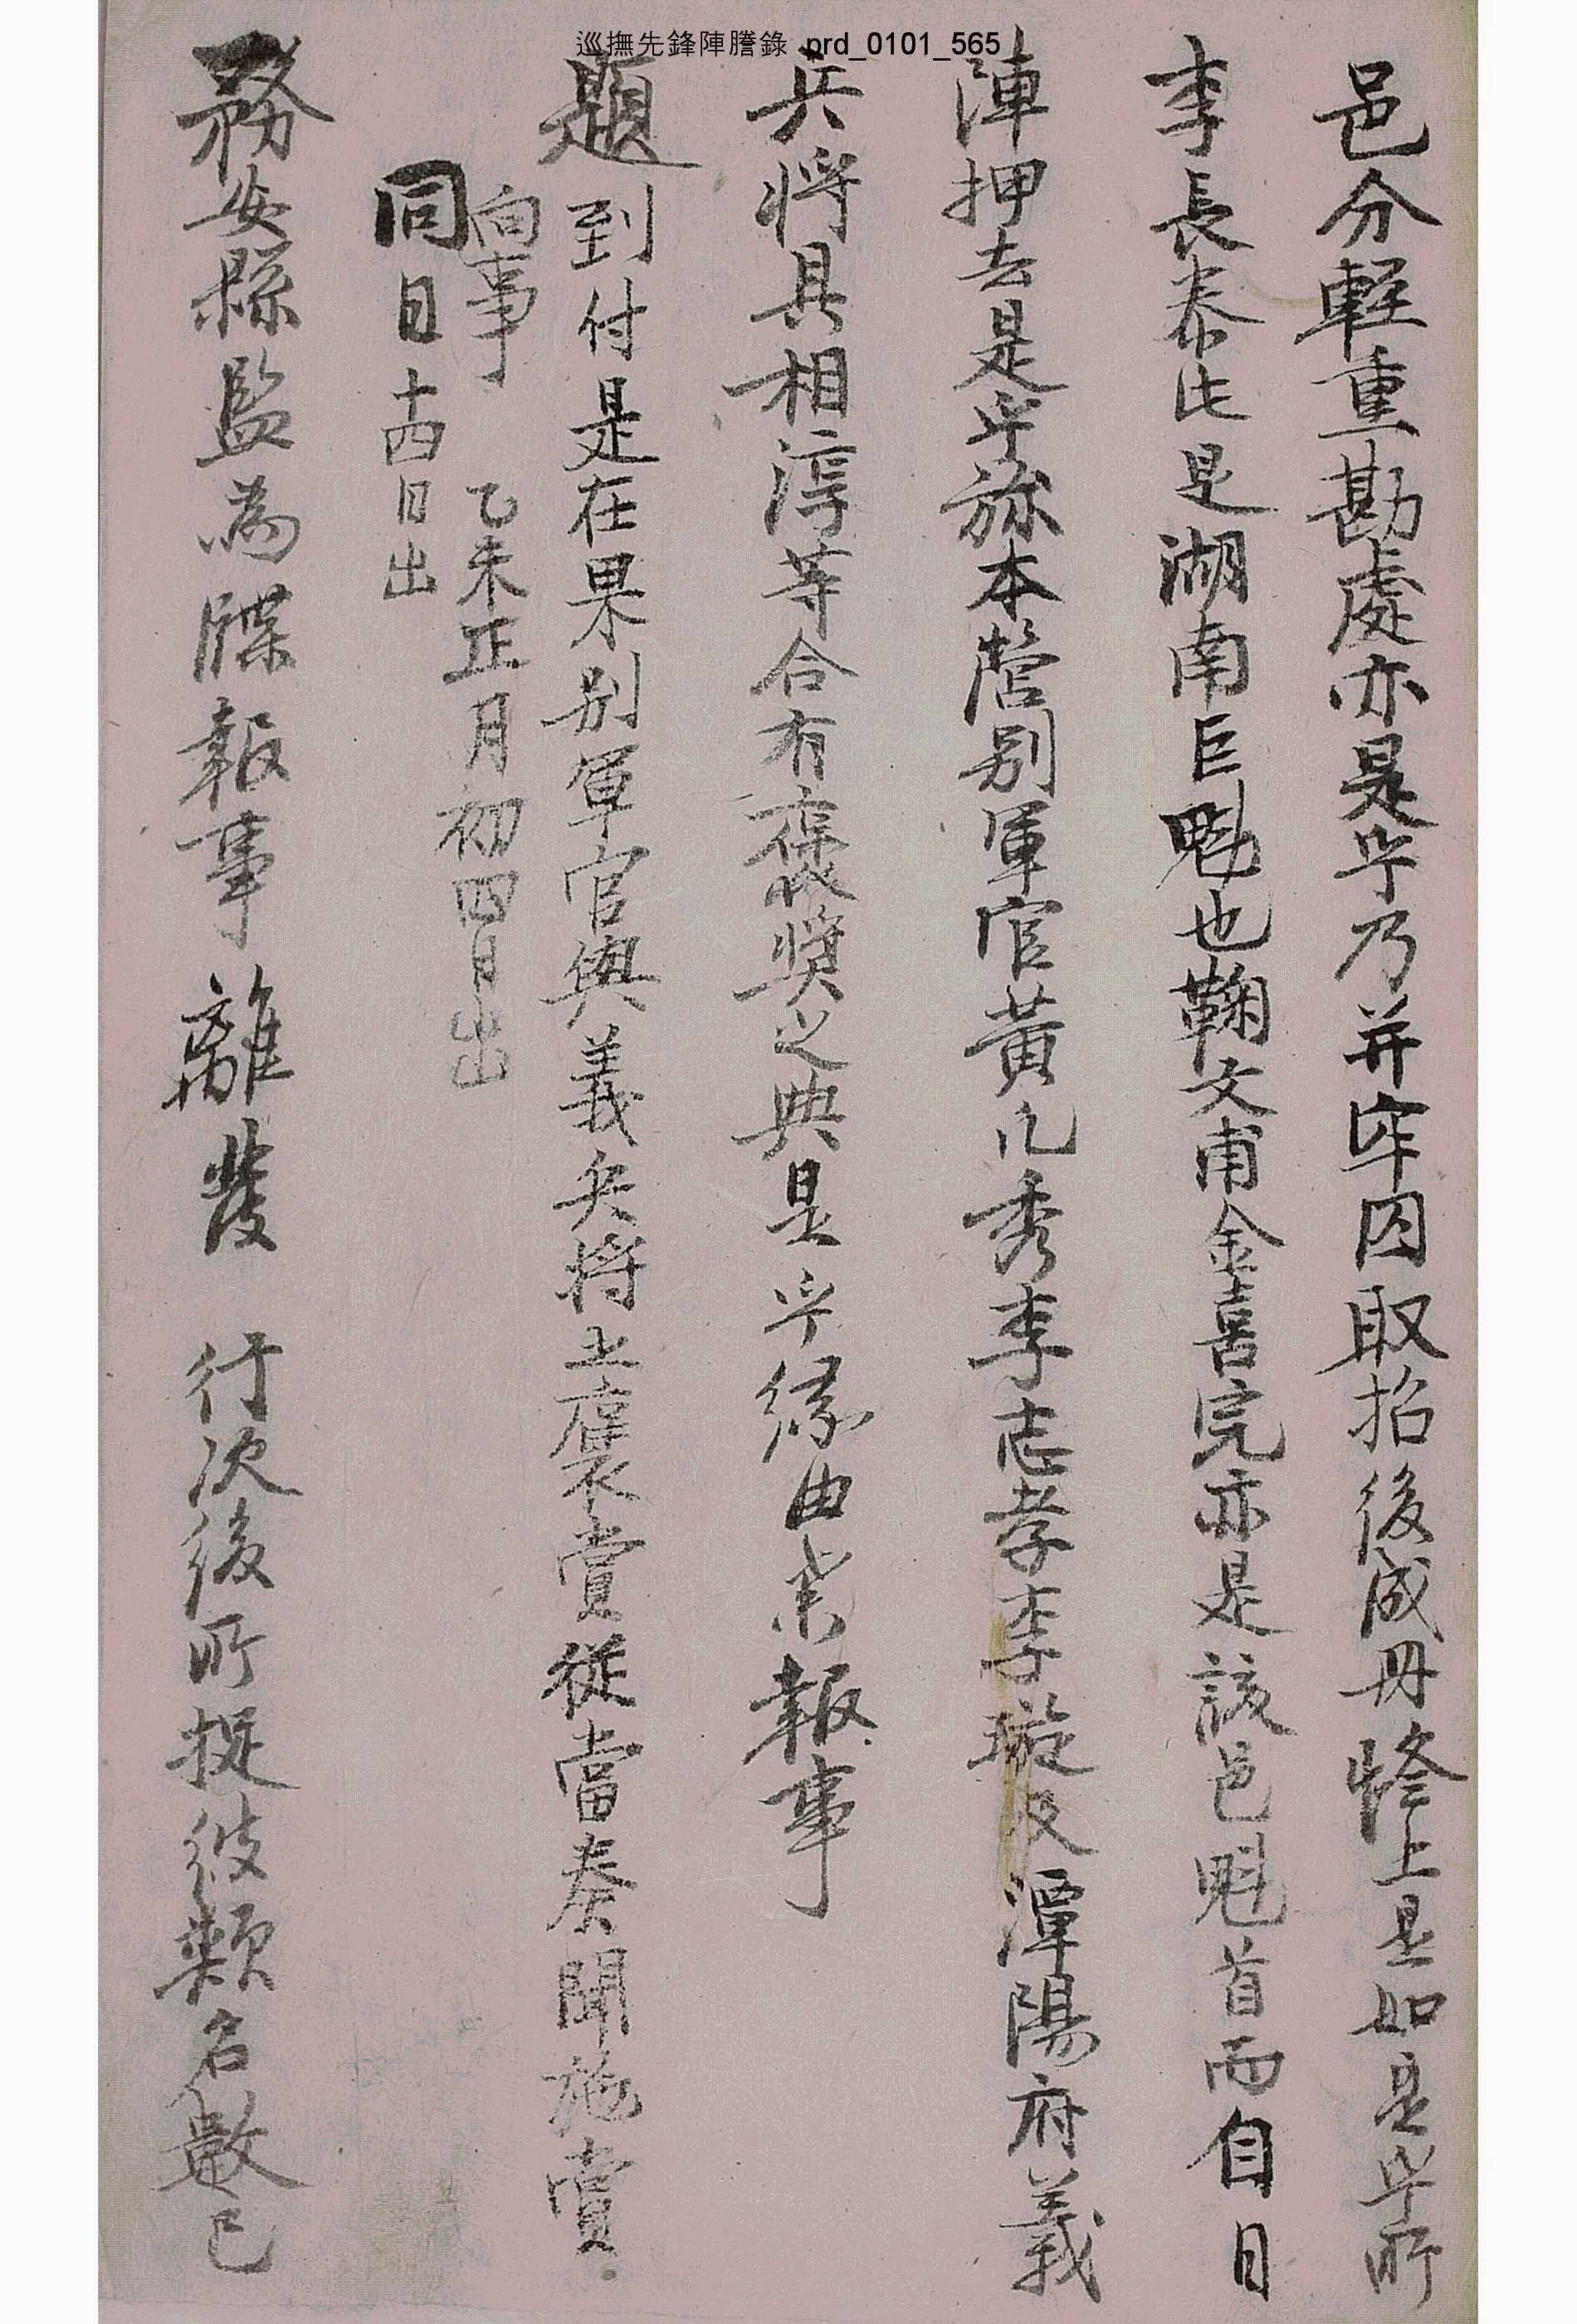 巡撫先鋒陣謄錄 prd_0101_565
邑分輕重勘處亦是乎乃并牢囚取招後成冊修上是如是乎所
李長泰比是湖南巨魁也鞠文甫金喜完亦是該邑魁首而自日
陣押去是乎旀本營別軍官黃凡秀李志孝李璇及潭陽府義
兵將具相淳等合有褒奬之典是乎緣由業報事
題到付是在果別軍官與義兵將士褒賞從當奏聞施賞
向事 乙未正月初四日出
同日十四日出
務安縣監為牒報事離發 行次後所捉彼類名數已